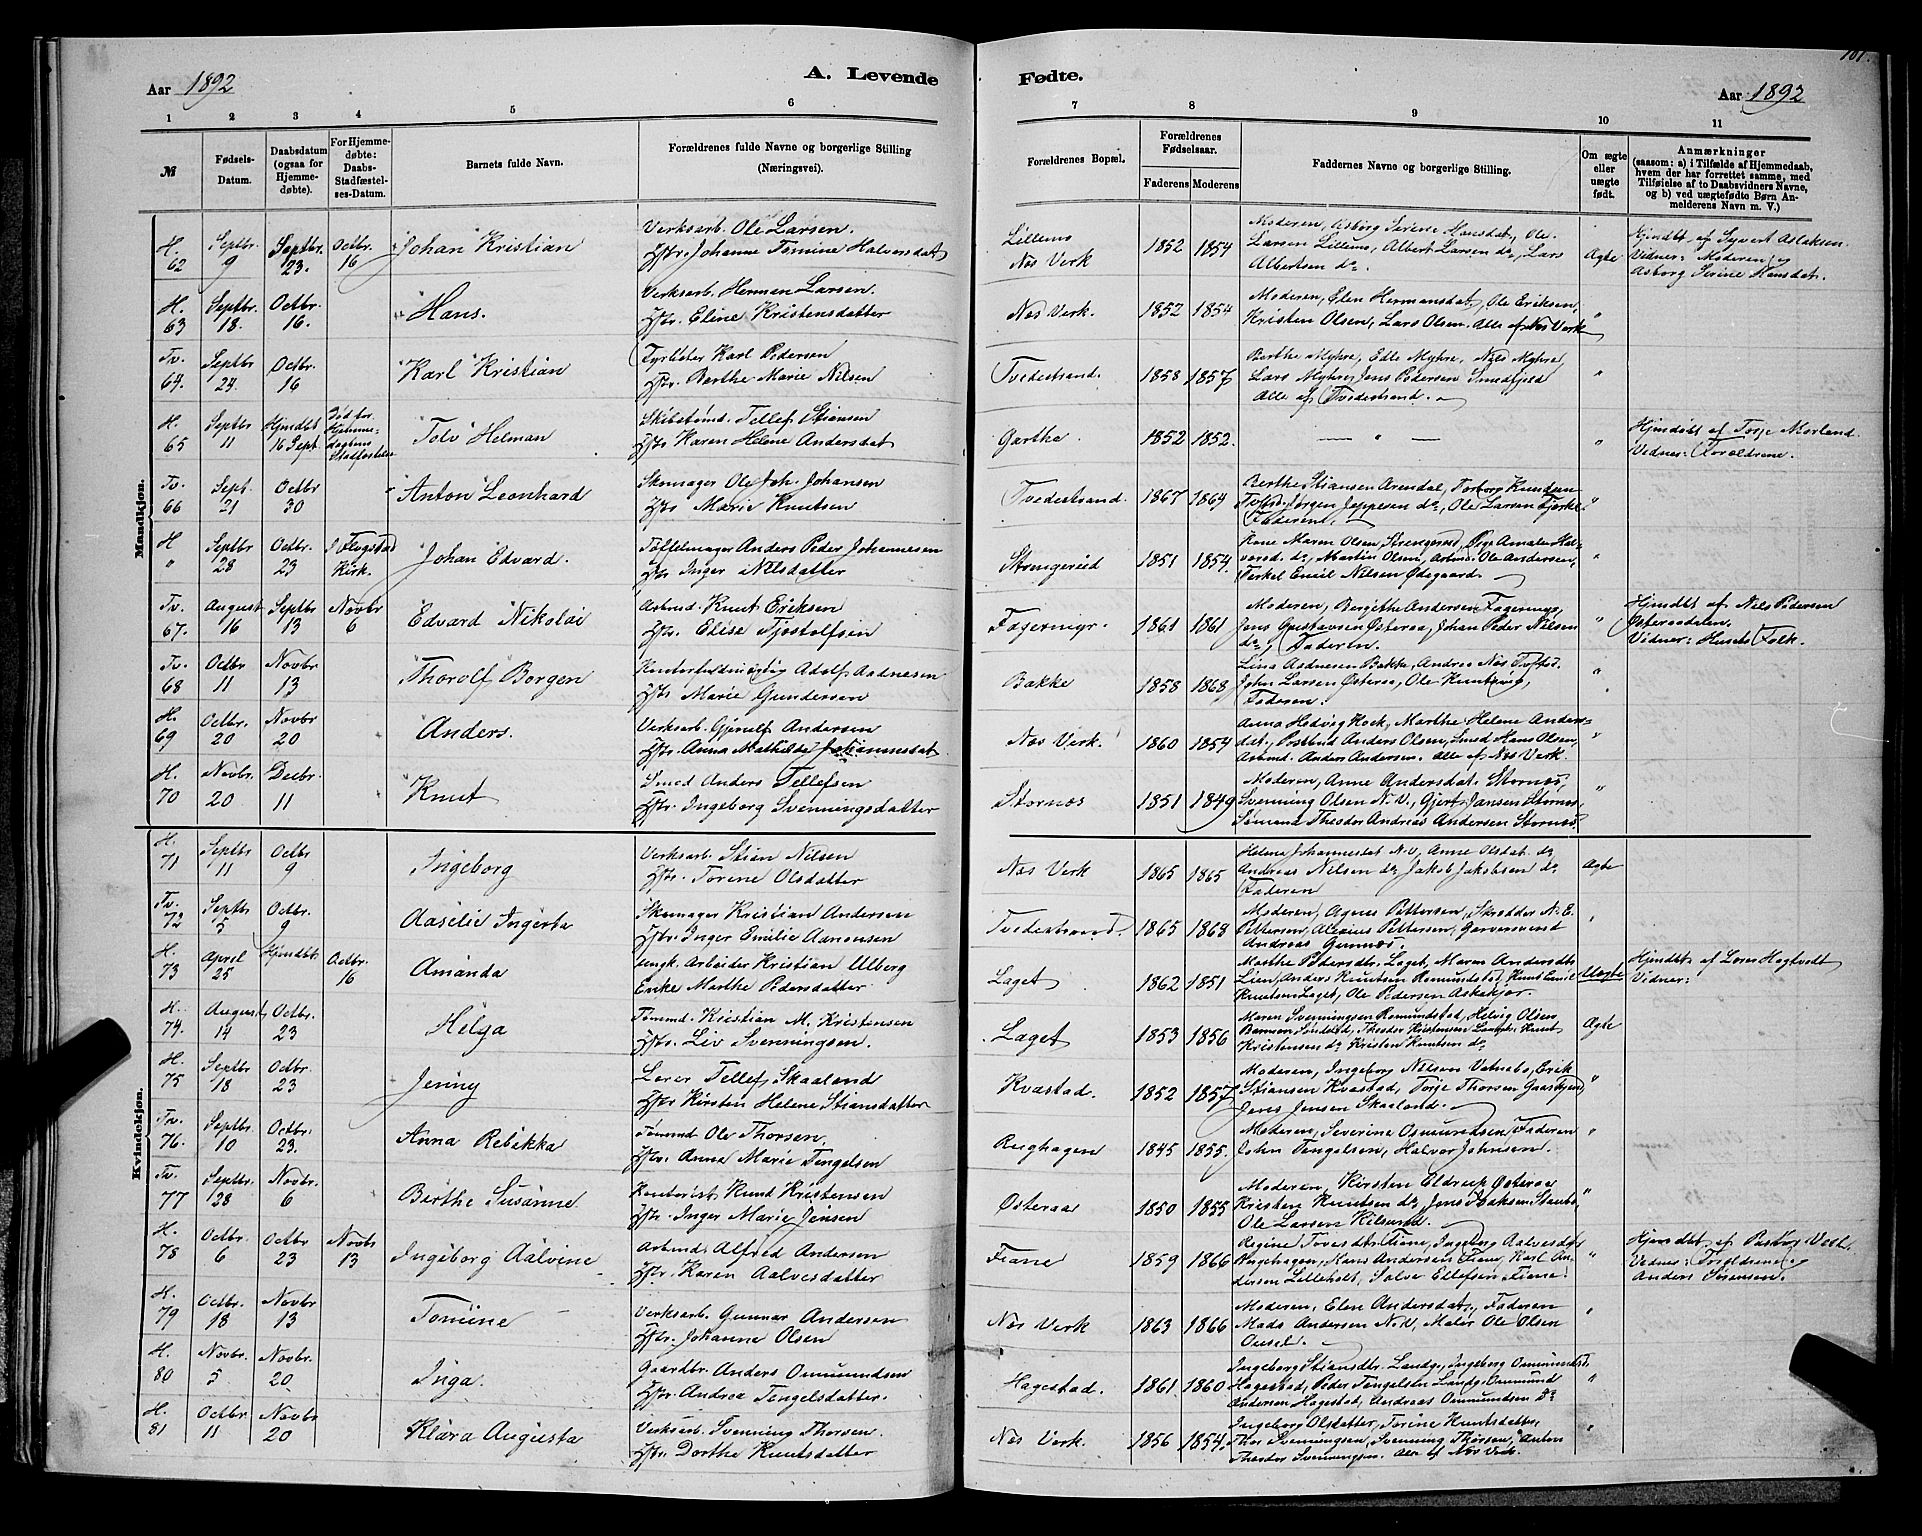 101.
Aar 1892
A. Levende
Fødte.
Aar 1892
1 2 3 4 5 6
7 8 9 10 11
№
Fødsels-
Datum.
Daabsdatum
(ogsaa for
Hjemme-
døbte).
For Hjemme-
døbte:
Daabs-
Stadfæstel-
ses-Datum.
Barnets fulde Navn.
Forældrenes fulde Navne og borgerlige Stilling
(Næringsvei).
Forældrenes Bopæl.
Forældrenes
Fødselsaar.
Faderens Moderens
Faddernes Navne og borgerlige Stilling.
Om ægte
eller
uægte
født.
Anmærkninger
(saasom: a) i Tilfælde af Hjemmedaab,
hvem der har forrettet samme, med
Tilføielse af to Daabsvidners Navne,
og b) ved uægtefødte Børn An-
melderens Navn m. V.)
Mandkjøn.
H. 62 Septbr. 9 Septbr. 23. Octbr. 16 Johan Kristian
Verksarb. Ole Larsen.
Hstr. Johanne Tomine Halvorsdat
Lillemo
Nes Verk 1852 1854
Moderen, Asborg Serine Hansdat, Ole
Larsen Lillemo, Albert Larsen do, Lars
Albertsen do.
Ægte
Hjmdbt af Syvert Aslaksen
Vidner: Moderen og
Asborg Serine Hansdat.
H. 63 Septbr. 18. Octbr. 16. Hans.
Verksarb. Herman Larsen.
Hstr. Eline Kristensdatter
Nes Verk. 1852 1854
Moderen, Elen Hermansdat, Ole Eriksen,
Kristen Olsen, Lars Olsen. Alle af Nes Verk
"
Tv. 64. Septbr 24. Octbr 16 Karl Kristian
Fyrbøter Karl Pedersen
Hstr. Berthe Marie Nilsen
Tvedestrand. 1858 1857
Berthe Myhre, Edle Myhre, Nils Myhre,
Lars Myhre, Jens Pedersen Smedfjeld
Alle af Tvedestrand.
"
H 65 Septbr 11 Hjmdbt 16 Sept Tolv Helman
Skibstømd. Tellef Stiansen
Hstr Karen Helene Andersdat
Garthe. 1852 1852.
— " —
"
Hjmdøbt af Torje Morland.
Vidner: Forældrene.
Tv. 66 Sept. 21 Octbr 30 Anton Leonhard
Skomager Ole Joh. Johansen
Hstr Marie Knutsen
Tvedestrand. 1867 1864
Berthe Stiansen Arendal, Torborg Knudsen
Tvstrd. Jørgen Jeppesen do, Ole Larsen
Faderen.
"
H " Septbr 28 Octbr. 23 Kirk. Johan Edvard.
Tøffelmager Anders Peder Johannesen
Hstr Inger Nilsdatter
Strengeried 1851 1854.
Kone Maren Olsen, Ørje Amalie Hal-
vorsd. do, Martin Olsen, Arbmd. Ole Andersen,
Terkel Emil Nilsen Ødegaard
"
Tv. 67. August 16 Septbr 13 Novbr 6 Edvard Nikolai
Arbmd. Knut Eriksen
Hstr. Elise Tjostolfsen
Fagermyr. 1861 1861
Moderen, Bergithe Andersen Fagermyr,
Jens Gustavsen Østeraa, Johan Peder Nilsen
do, Faderen.
"
Hjmdbt af Nils Pedersen
Østeraadalen.
Vidner: Husets Folk.
Tv. 68 Octbr 11 Novbr. 13 Thorolf Borgen
Adolf Aadnesen
Hstr Marie Gundersen
Bakke 1858 1868
Lina Aadnesen Bakke, Andrea
John Larsen Østeraa, Ole
Faderen.
"
H. 69 Octbr. 20 Novbr 20 Anders.
Verksarb. Gjerulf Andersen
Hstr. Anna Mathilde Johannesdat
Nes Verk. 1860 1854
Anna Hedvig Hock, Marthe Helene Anders-
dat, Anders Olsen, Smed Hans Olsen,
Arbmd. Anders Andersen. Alle af Nes Verk.
"
H. 70 Novbr. 20 Decbr. 11 Knut
Smed Anders Tellefsen
Hstr. Ingeborg Svenningsdatter
Stornes 1851 1849
Moderen, Anne Andersdat Stornes,
Svenning Olsen N.V., Gjert Jansen Stornes,
Sømand Theodor Andreas Andersen Stornes.
"
Kvindekjøn.
H. 71 Septbr 11 Octbr 9 Ingeborg
Verksarb. Stian Nilsen
Hstr. Torine Olsdatter
Nes Verk 1865 1865
Helene Johannesdat N.V, Anne Olsdat. do
Andreas Nilsen do Jakob Jakobsen do
Faderen
Ægte
Tv. 72 Septbr 5 Octbr. 9 Aaselie Ingerta
Skomager Kristian Andersen
Hstr. Inger Emilie Aanonsen
Tvedestrand. 1865 1868
Moderen, Agnes Pettersen, Skrædder N. E.
Pettersen, Alexius Pettersen, Garversvend
Andreas Gunnes.
"
H 73 April 25 Hjmdbt Octbr. 16 Amanda
Ungk. Arbeider Kristian Ulberg
Enke Marthe Pedersdatter
Laget 1862 1851
Marthe Pedersdtr. Laget, Maren Andersdtr
Lien, Anders Knutsen Romundstad, Knut Emil
Knutsen Laget, Ole Pedersen Askekjær.
Uægte
Hjmdbt af Lærer Hagtvedt
Vidner:
H. 74. August 14 Octbr. 23 Helga
Tømmd. Kristian M. Kristensen
Hstr. Liv Svenningsen.
Laget 1853 1856
Maren Svenningsen Romundstad, Helvig Olsen
Theodor Kristensen Knut
Kristensen do Kristen Knutsen do
Ægte
H. 75 Septbr 18 Octbr. 23 Jenny
Lærer Tellef Skaaland
Hstr Kirsten Helene Stiansdatter
Kvastad. 1852 1857
Moderen, Ingeborg Nilsen Vatnebo, Erik
Stiansen Kvastad, Torje Thorsen
Jens Jensen Skaaland.
"
Tv. 76. Septbr. 10 Octbr. 23. Anna Rebekka
Tømmd Ole Thorsen.
Hstr. Anna Marie Tengelsen
Berghagen 1845 1855.
Moderen, Severine Osmundsen, Faderen
John Tengelsen, Halvor Johnsen.
"
Tv. 77 Septbr. 28 Novbr. 6 Birthe Susanne.
Kontorist Knud Kristensen
Hstr. Inger Marie Jensen
Østeraa 1850 1855
Moderen, Kirsten Eldrup Østeraa
Kristen Knutsen do, Jens Isaksen
Ole Larsen Kilsund.
"
H. 78 Octbr. 6 Octbr 23 Novbr 13 Ingeborg Aalvine
Arbmd. Alfred Andersen
Hstr. Karen Aalvesdatter
Fiane 1859 1866
Regine Tovesdtr. Fiane, Ingeborg Aalvesdtr
Berghagen, Hans Andersen Fiane, Karl An-
dersen Lilleholt, Salve Ellefsen Fiane.
"
Hjmdbt af Pastor
Vidner: Forældrene og
Anders Sørensen.
H. 79 Octbr. 18 Novbr. 13 Tomine
Verksarb. Gunnar Andersen
Hstr. Johanne Olsen
Nes Verk 1863 1866
Moderen, Elen Andersdat, Faderen
Mads Andersen N.V. Maler Ole Olsen

"
H. 80 Novbr. 5 Novbr. 20 Inga.
Gaardbr. Anders Osmundsen
Hstr. Andrea Tengelsdatter.
Hagestad. 1861 1860
Ingeborg Stiansdtr. Landge, Ingeborg Osmundsdt.
Hagestad, Peder Tengelsen Landge, Osmund
Andersen Hagestad, Andreas Osmundsen do
"
H. 81 Octbr 11 Novbr 20 Klara Augusta
Verksarb. Svenning Thorsen.
Hstr. Dorthe Knutsdatter
Nes Verk. 1856 1854.
Ingeborg Olsdatter, Torine Knutsdatter,
Thor Svenningsen, Svenning Thorsen, Anton
Theodor Svenningsen. Alle af Nes Verk.
"